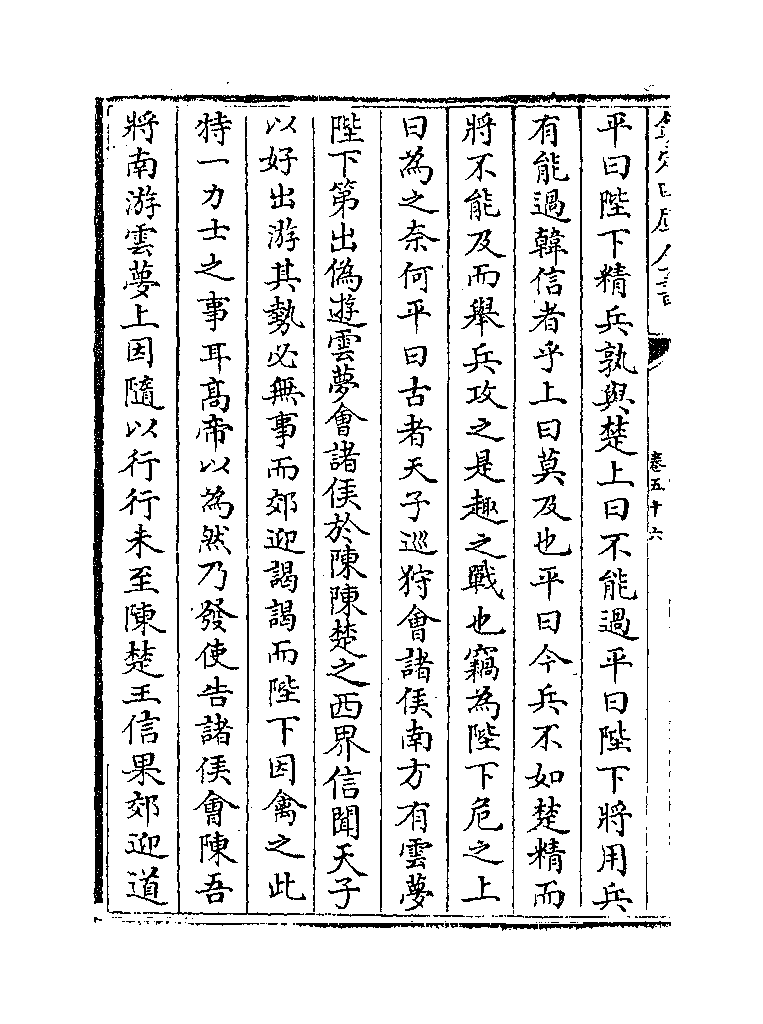 欽定四庫全書
卷五十六
平曰陛下精兵孰與楚上曰不能過平曰陛下將用兵
有能過韓信者乎上曰莫及也平曰今兵不如楚精而
將不能及而舉兵攻之是趣之戰也竊為陛下危之上
曰為之奈何平曰古者天子巡狩會諸侯南方有雲夢
陛下第出偽遊雲夢會諸侯於陳陳楚之西界信聞天子
以好出游其勢必無事而郊迎謁謁而陛下因禽之此
特一力士之事耳高帝以為然乃發使告諸侯會陳吾
將南游雲夢上因隨以行行未至陳楚王信果郊迎道